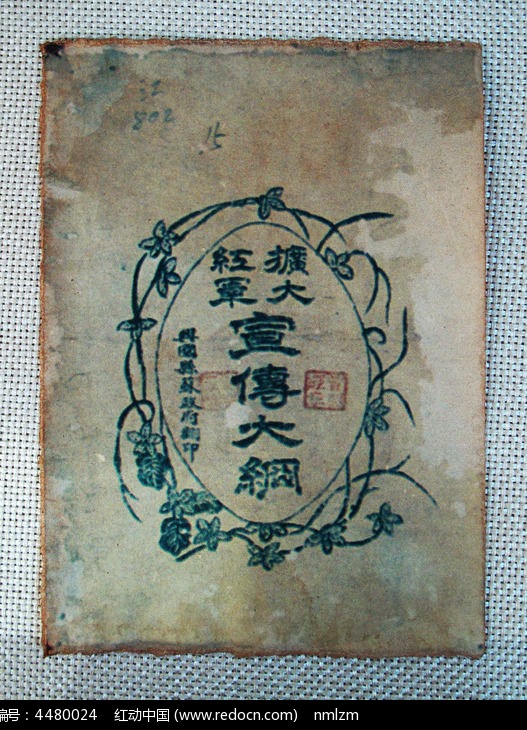 江
802
15
擴大
紅軍
宣傳大綱
興國縣蘇政府翻印
编号：4480024 红动中国 (www.redocn.com) nmlzm